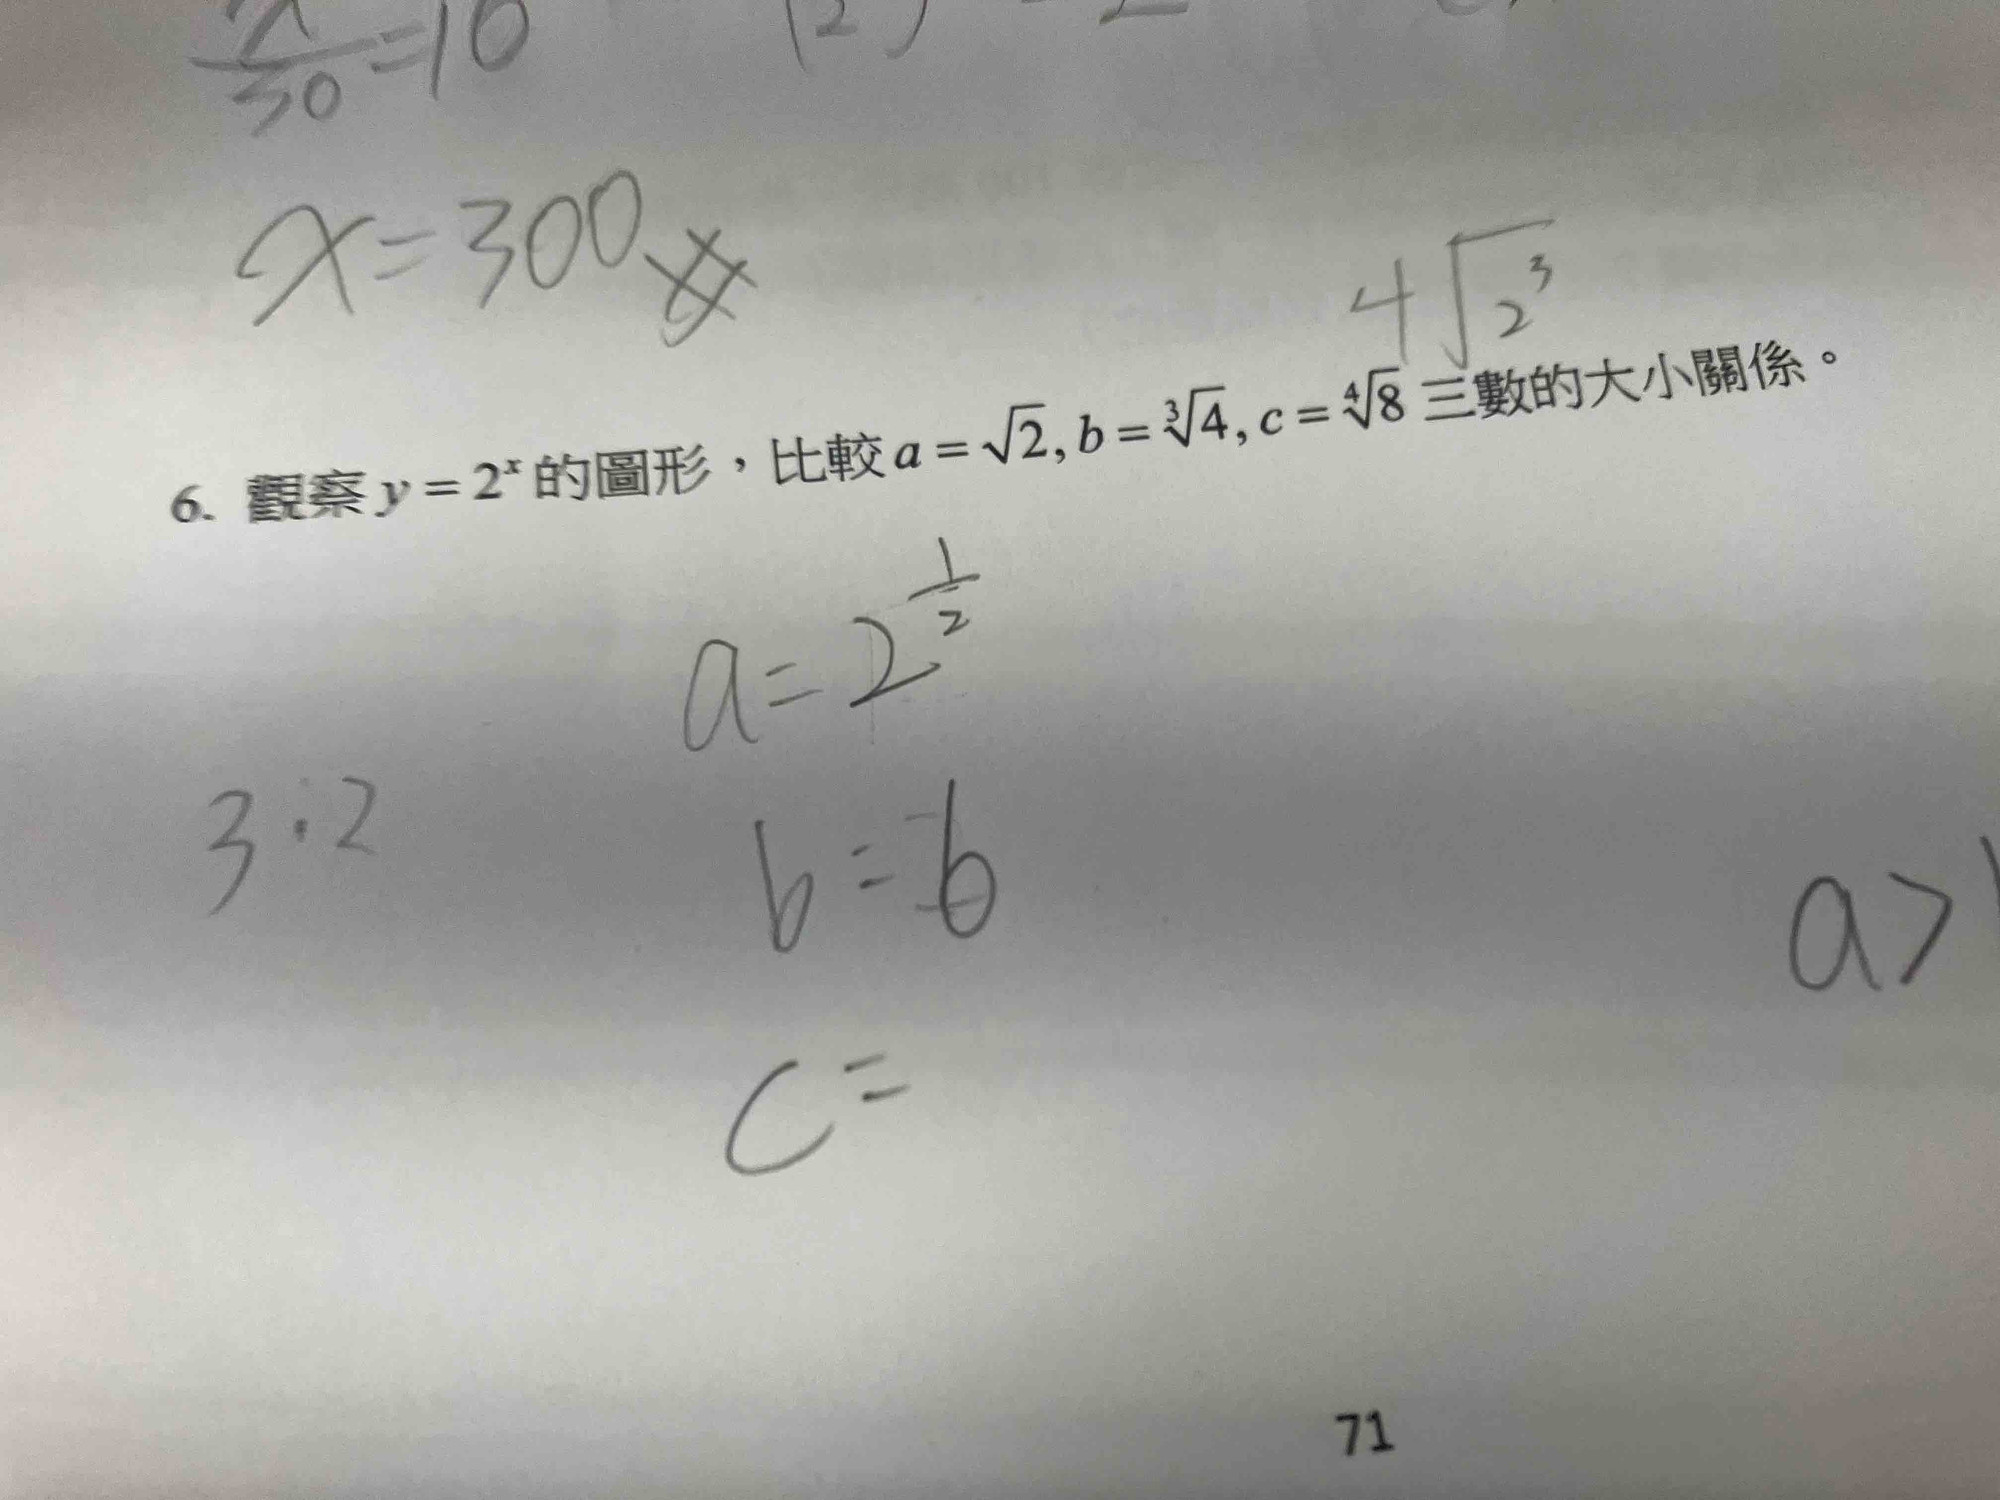 30 =10
(2)
x=300
4√2³
6. 觀察 y = 2ˣ 的圖形，比較 a = √2, b = ³√4, c = ⁴√8 三數的大小關係。
a=2^(1/2)
3 · 2
b=6
a>
c=
71